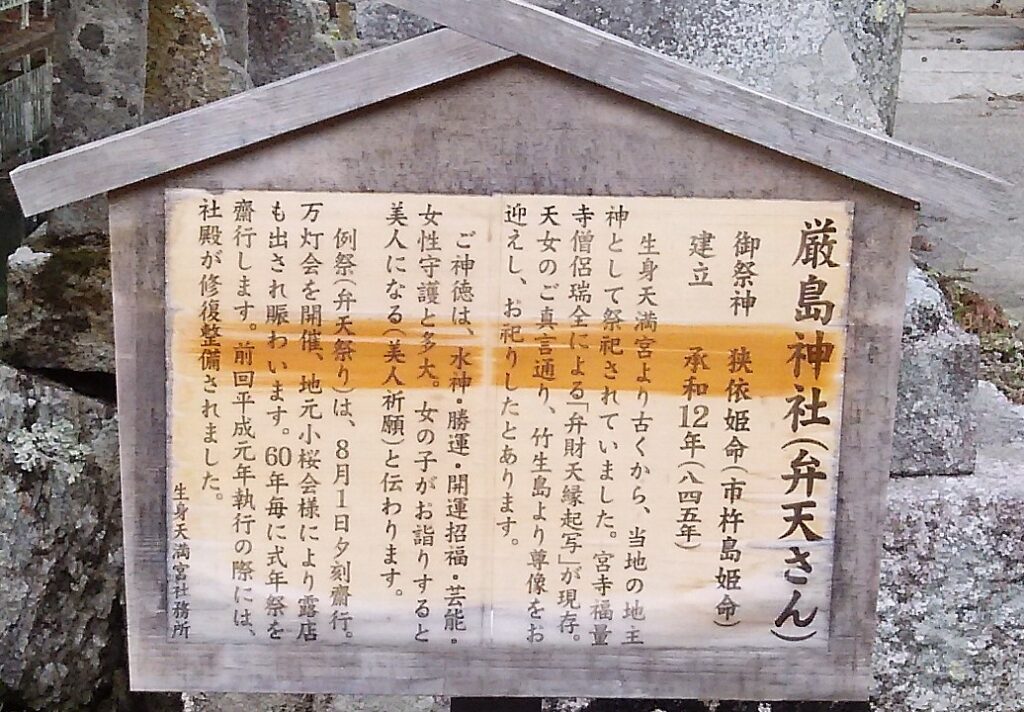 厳島神社(弁天さん)
御祭神 狭依姫命(市杵島姫命)
建立 承和12年(八四五年)
生身天満宮より古くから、当地の地主
神として祭祀されていました。宮寺福量
寺僧侶瑞全による「弁財天縁起写」が現存。
天女のご真言通り、竹生島より尊像をお
迎えし、お祀りしたとあります。
ご神徳は、水神・勝運・開運招福・芸能・
女性守護と多大。女の子がお詣りすると
美人になる(美人祈願)と伝わります。
例祭(弁天祭り)は、8月1日夕刻齋行。
万灯会を開催、地元小桜会様により露店
も出され賑わいます。60年毎に式年祭を
齋行します。前回平成元年執行の際には、
社殿が修復整備されました。
生身天満宮社務所